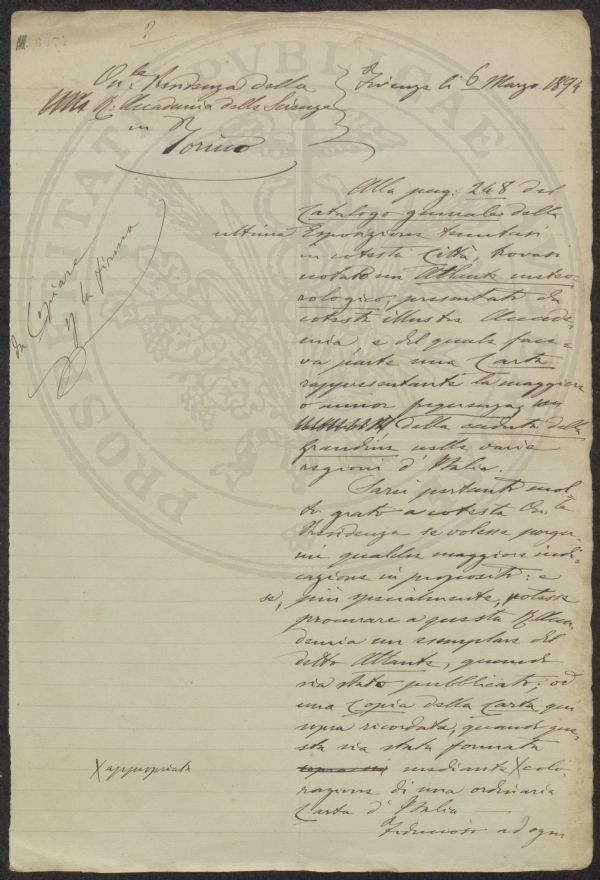 6071
2
On.le Presidenza della
R. Accademia delle Scienze
in
Torino
Firenze li 6 Marzo 1894
da Copiare
per la firma
Alla pag. 248 del
Catalogo generale della
ultima Esposizione tenutasi
in cotesta Città, trovasi
notato un Atlante meteo-
rologico, presentato da
cotesta illustre Accade-
mia, e del quale face-
va parte una Carta
rappresentante la maggiore
o minor frequenza
della caduta della
Grandine nelle varie
regioni d'Italia.
Sarei pertanto mol-
to grato a cotesta On.la
Presidenza se volesse porger-
mi qualche maggiore indi-
cazione in proposito: e
se, più specialmente, potesse
procurare a questa R. Acca-
demia un esemplare del
detto Atlante, quando
sia stato pubblicato; od
una Copia della Carta qui
sopra ricordata, quando que-
sta sia stata formata
X appropriata
mediante X colo-
razione di una ordinaria
Carta d'Italia
Fiducioso ad ogni